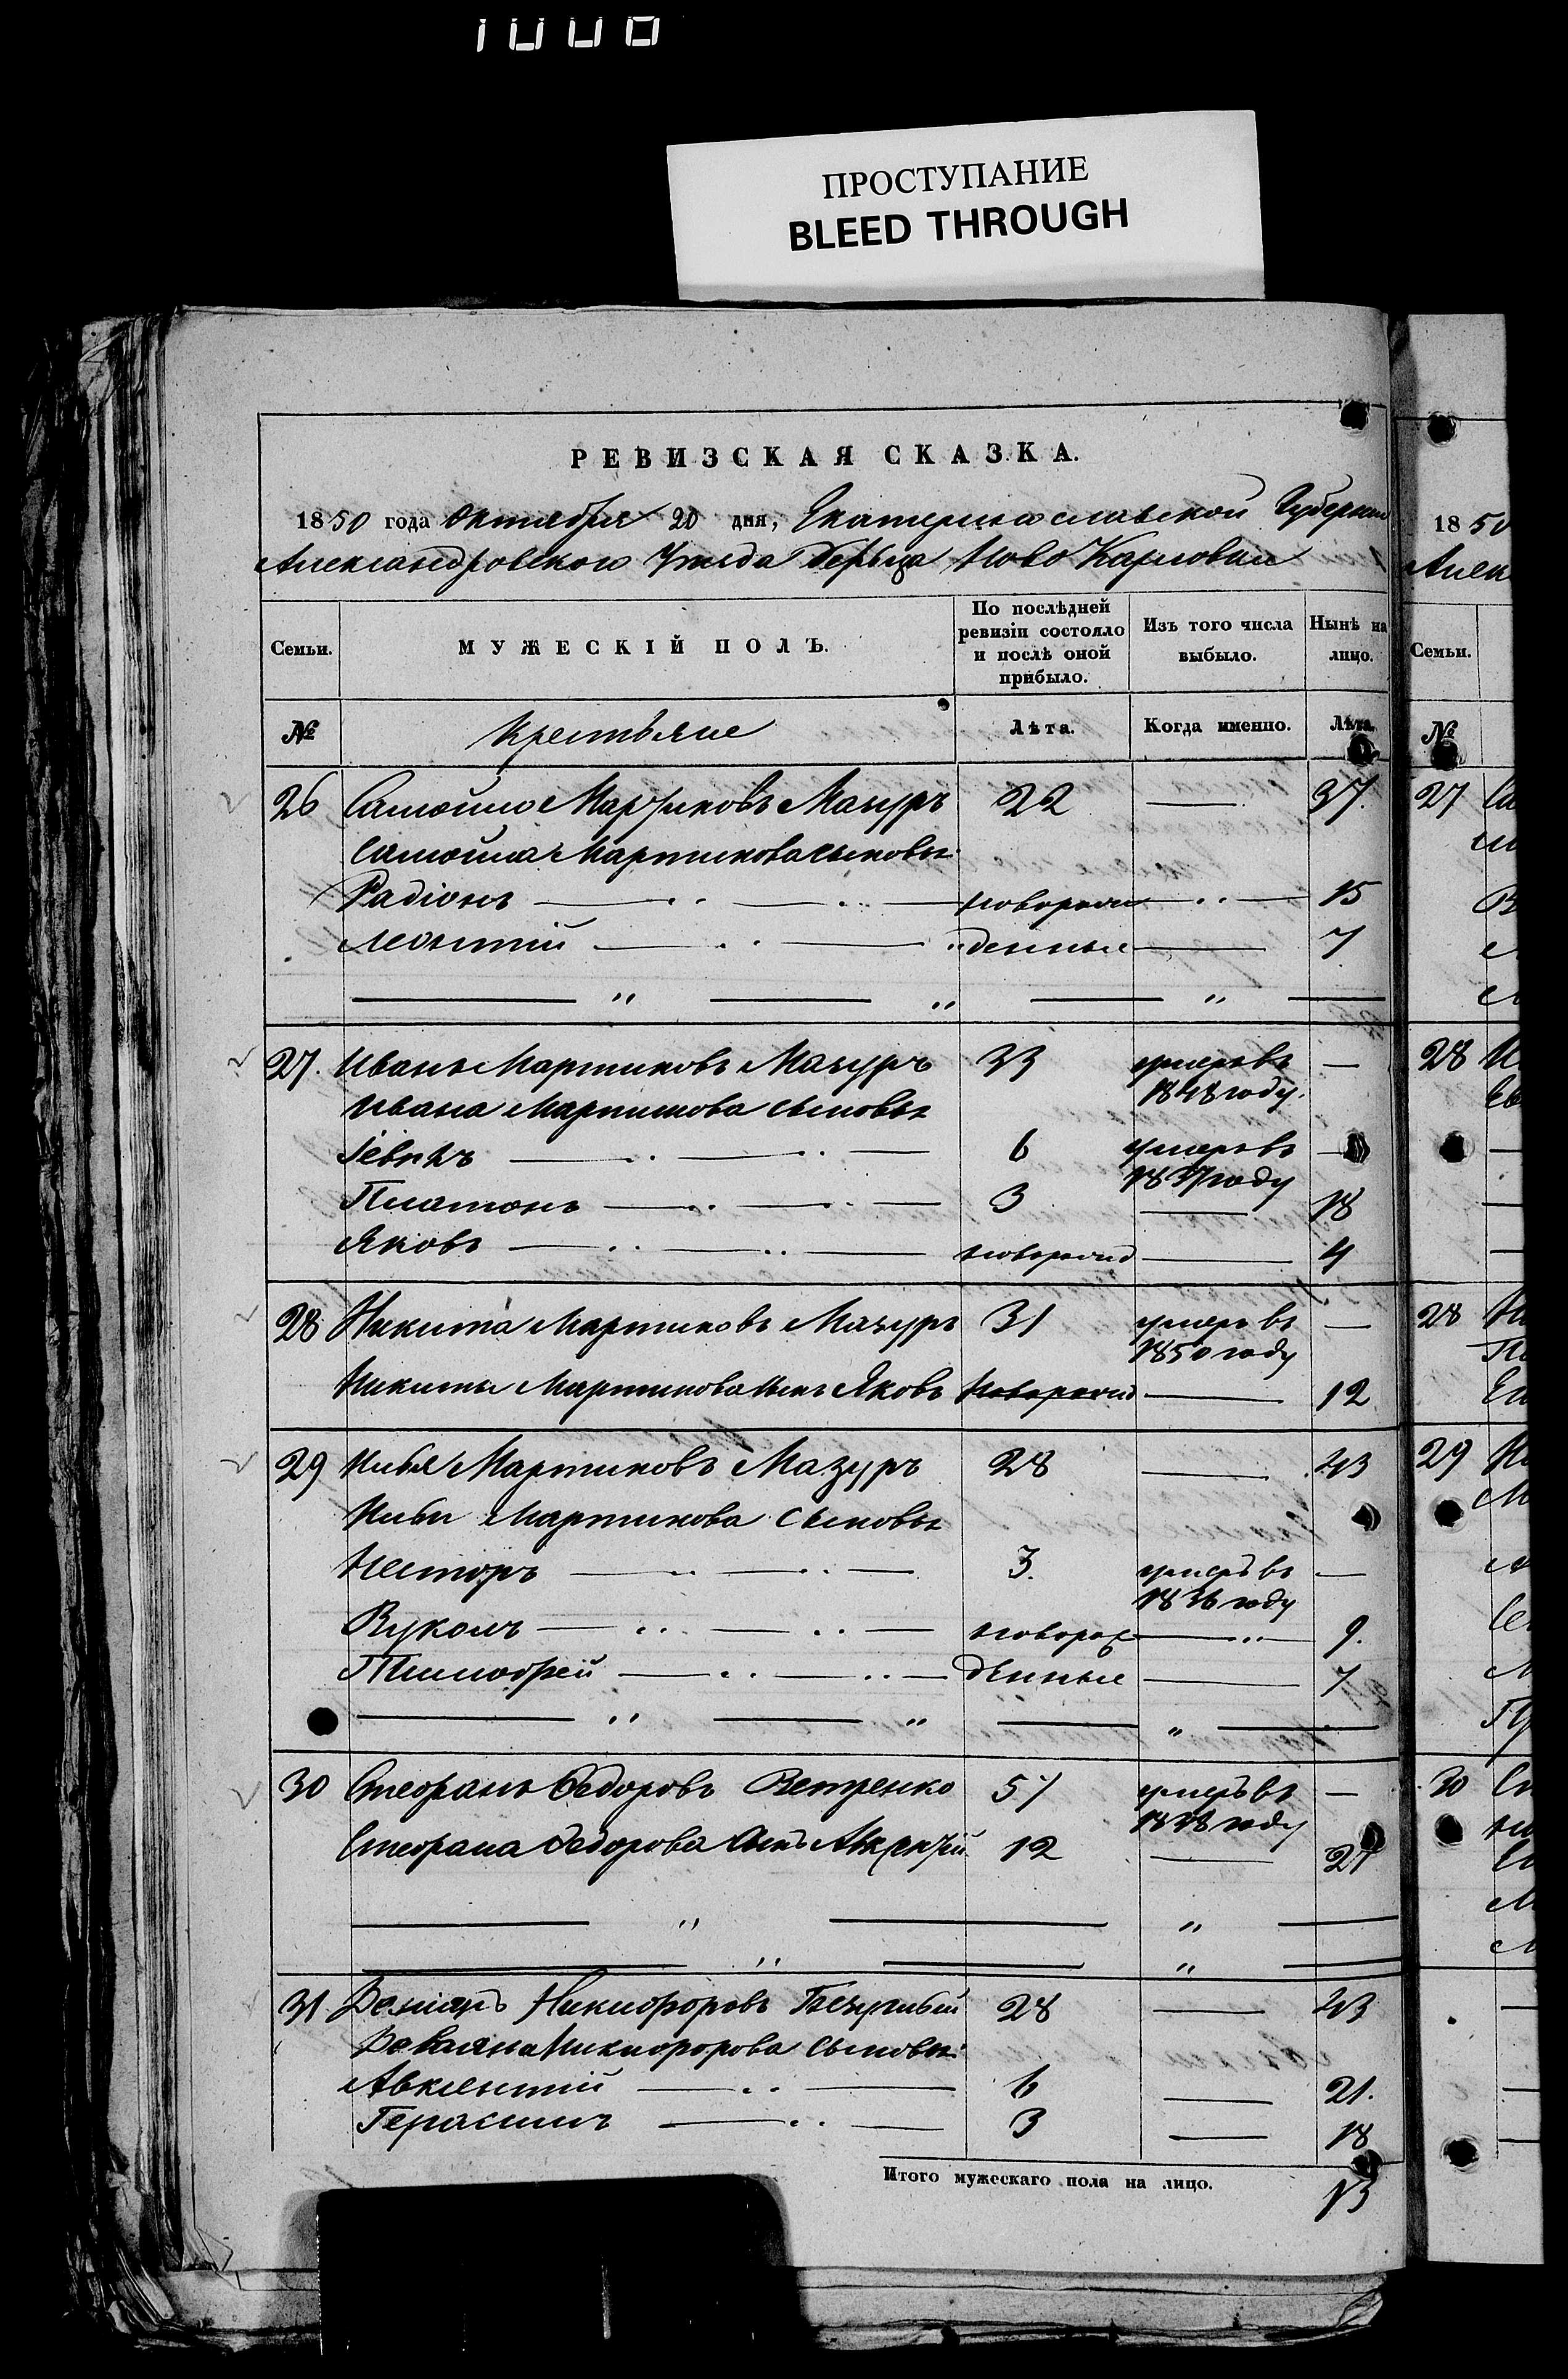 1006
ПРОСТУПАНИЕ
BLEED THROUGH
РЕВИЗСКАЯ СКАЗКА.
1850 года Октября 20 дня, Екатеринославской Губернии
Александровского Уезда Ново Карловки
Семьи. МУЖЕСКІЙ ПОЛЪ. По послѣдней ревизіи состояло и послѣ оной прибыло. Изъ того числа выбыло. Нынѣ на лицо.
№ Крестьяне Лѣта. Когда именно. Лѣта.
26 Самойло Мартиновъ Мазуръ 22 — 37.
Самойла Мартинова сыновья
Радіонъ — новорож — 15
Леонтій — денные — 7
27. Иванъ Мартиновъ Мазуръ 33 умеръ въ —
1848 году.
Ивана Мартинова сыновья
6 умеръ въ —
1837 году
Платонъ — 3 — 18
Яковъ — новорожд — 4
28 Никита Мартиновъ Мазуръ 31 умеръ въ —
1850 году
Никиты Мартинова сынъ Яковъ новорожд — 12
29 Илья Мартиновъ Мазуръ 28 — 43
Ильи Мартинова сыновья
Несторъ — 3. умеръ въ —
1836 году
Вуколъ — новорож — 9.
Тимофей — денные — 7
30 Стефанъ Федоровъ Ветренко 57 умеръ въ —
1838 году
Стефана Федорова сынъ 12 — 27
31 Демянъ Никифоровъ 28 — 43
Демяна Никифорова сыновья
Авксентій — 6 — 21.
Герасимъ — 3 — 18
Итого мужескаго пола на лицо.
13
1850
Алек
Семьи.
№
27
28
28
29
30